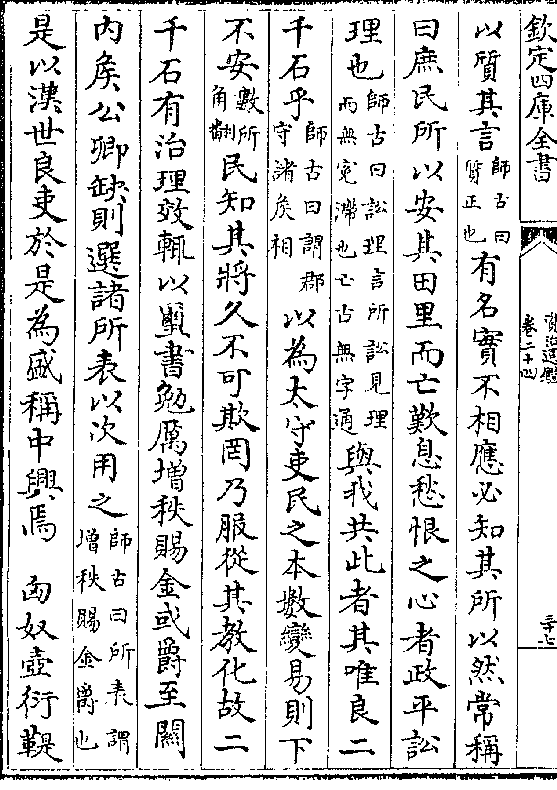 欽定四庫全書
資治通鑑
卷二十四
三十七
以質其言師古曰質正也有名實不相應必知其所以然常稱
曰庶民所以安其田里而亡歎息愁恨之心者政平訟
理也師古曰訟理言所訟見理而無寃滯也亡古無字通與我共此者其唯良二
千石乎師古曰謂郡守諸侯相以為太守吏民之本數變易則下
不安數所角翻民知其將久不可欺罔乃服從其教化故二
千石有治理效輒以璽書勉厲增秩賜金或爵至關
内侯公卿缺則選諸所表以次用之師古曰所表謂增秩賜金爵也
是以漢世良吏於是為盛稱中興焉　匈奴壺衍鞮